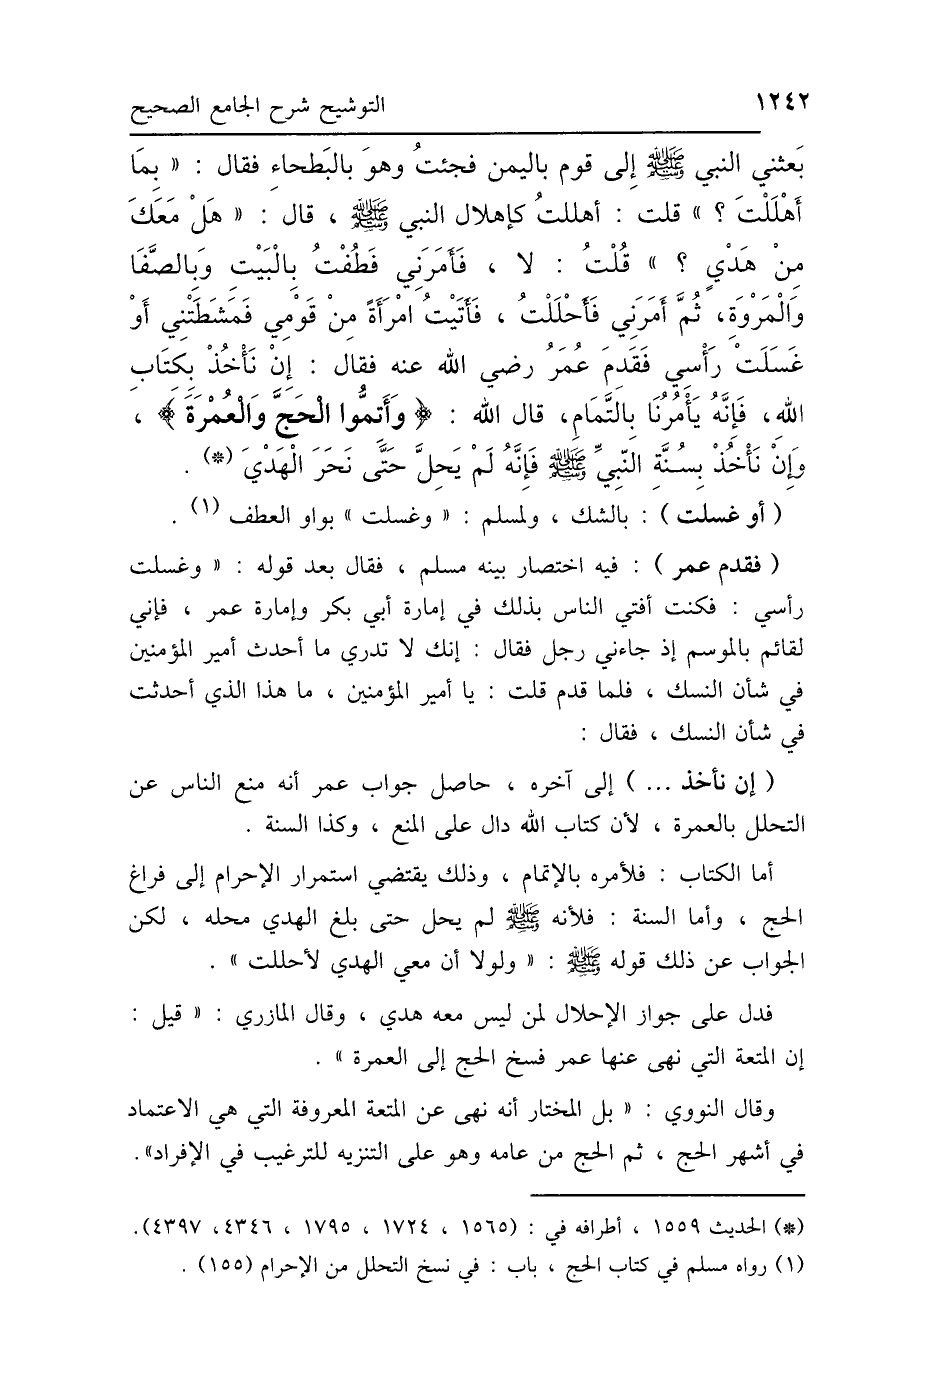 ١٢٤٢ التوشيح شرح الجامع الصحيح
بَعثني النبي ﷺ إلى قوم باليمن فجئتُ وهوَ بالبَطحاءِ فقال : « بِمَا
أَهْلَلْتَ ؟ » قلت : أهللتُ كإهلال النبي ﷺ ، قال : « هَلْ مَعَكَ
مِنْ هَدْيٍ ؟ » قُلْتُ : لا ، فَأَمَرَنِي فَطُفْتُ بِالْبَيْتِ وَبِالصَّفَا
وَالْمَرْوَةِ، ثُمَّ أَمَرَنِي فَأَحْلَلْتُ ، فَأَتَيْتُ امْرَأَةً مِنْ قَوْمِي فَمَشَطَتْنِي أَوْ
غَسَلَتْ رَأْسِي فَقَدِمَ عُمَرُ رضي الله عنه فقال : إِنْ نَأْخُذْ بِكِتَابِ
الله، فَإِنَّهُ يَأْمُرُنَا بِالتَّمَامِ، قال الله : ﴿ وَأَتِمُّوا الْحَجَّ وَالْعُمْرَةَ ﴾ ،
وَإِنْ نَأْخُذْ بِسُنَّةِ النّبِيِّ ﷺ فَإِنَّهُ لَمْ يَحِلَّ حَتَّى نَحَرَ الْهَدْيَ (*) .
( أو غسلت ) : بالشك ، ولمسلم : « وغسلت » بواو العطف (١) .
( فقدم عمر ) : فيه اختصار بينه مسلم ، فقال بعد قوله : « وغسلت
رأسي : فكنت أفتي الناس بذلك في إمارة أبي بكر وإمارة عمر ، فإني
لقائم بالموسم إذ جاءني رجل فقال : إنك لا تدري ما أحدث أمير المؤمنين
في شأن النسك ، فلما قدم قلت : يا أمير المؤمنين ، ما هذا الذي أحدثت
في شأن النسك ، فقال :
( إن نأخذ ... ) إلى آخره ، حاصل جواب عمر أنه منع الناس عن
التحلل بالعمرة ، لأن كتاب الله دال على المنع ، وكذا السنة .
أما الكتاب : فلأمره بالإتمام ، وذلك يقتضي استمرار الإحرام إلى فراغ
الحج ، وأما السنة : فلأنه ﷺ لم يحل حتى بلغ الهدي محله ، لكن
الجواب عن ذلك قوله ﷺ : « ولولا أن معي الهدي لأحللت » .
فدل على جواز الإحلال لمن ليس معه هدي ، وقال المازري : « قيل :
إن المتعة التي نهى عنها عمر فسخ الحج إلى العمرة » .
وقال النووي : « بل المختار أنه نهى عن المتعة المعروفة التي هي الاعتماد
في أشهر الحج ، ثم الحج من عامه وهو على التنزيه للترغيب في الإفراد».
(*) الحديث ١٥٥٩ ، أطرافه في : (١٥٦٥ ، ١٧٢٤ ، ١٧٩٥ ، ٤٣٤٦، ٤٣٩٧).
(١) رواه مسلم في كتاب الحج ، باب : في نسخ التحلل من الإحرام (١٥٥) .